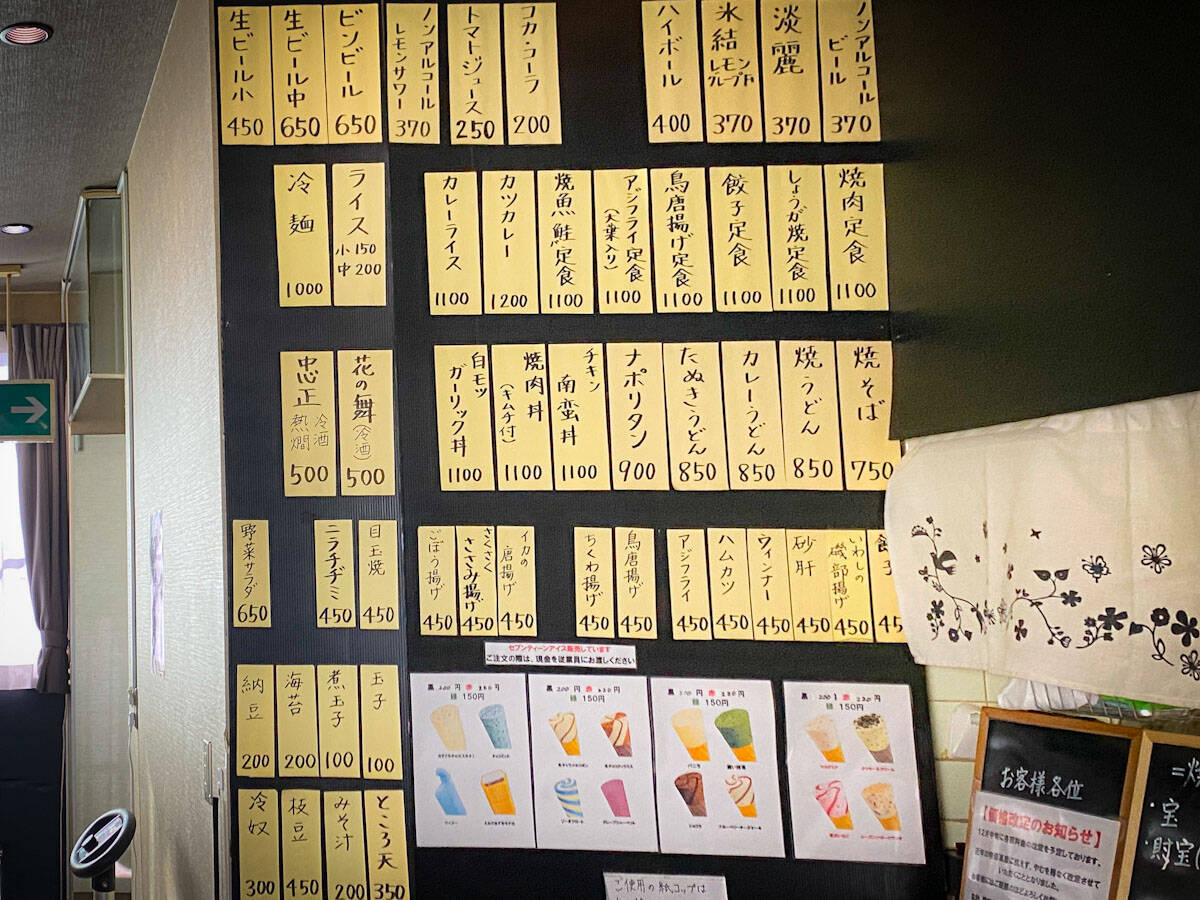 生ビール小
450
生ビール中
650
ビンビール
650
ノンアルコール
レモンサワー
370
トマトジュース
250
コカ・コーラ
200
ハイボール
400
氷結
レモン
370
淡麗
370
ノンアルコール
ビール
370
冷麺
1000
ライス
小150
中200
カレーライス
1100
カツカレー
1200
焼魚鮭定食
1100
アジフライ定食
(大葉入り)
1100
鳥唐揚げ定食
1100
餃子定食
1100
しょうが焼定食
1100
焼肉定食
1100
忠正
冷酒
熱燗
500
花の舞
(冷酒)
500
白モツ
ガーリック丼
1100
焼肉丼
(キムチ付)
1100
チキン
南蛮丼
1100
ナポリタン
900
たぬきうどん
850
カレーうどん
850
焼うどん
850
焼そば
750
野菜サラダ
650
ニラチヂミ
450
目玉焼
450
ごぼう揚げ
450
さくさく
ささみ揚げ
450
イカの
唐揚げ
450
ちくわ揚げ
450
鳥唐揚げ
450
アジフライ
450
ハムカツ
450
ウィンナー
450
砂肝
450
いわしの
磯部揚げ
450
45
セブンティーンアイス販売しています
ご注文の際は、現金を従業員にお渡しください
納豆
200
海苔
200
煮玉子
100
玉子
100
緑 150円
黒 200円
緑 150円
緑 150円
緑 150円
バニラ
ショコラ
冷奴
300
枝豆
450
みそ汁
200
ところ天
350
ご使用の紙コップは
お客様各位
【価格改定のお知らせ】
・宝
・財宝